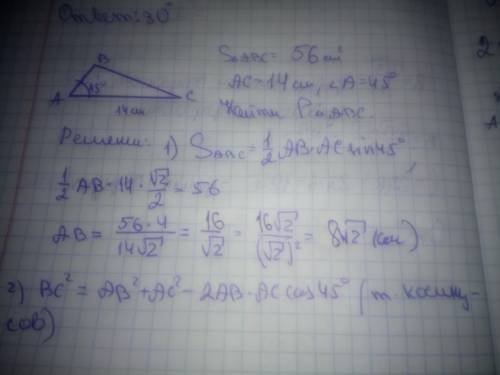 Ответ: 30°
S△ABC = 56 см²
AC = 14 см, ∠A = 45°
Найти P△ABC.
B
A 45° C
14 см
Решение: 1) S△ABC = 1/2 AB·AC sin 45°
1/2 AB · 14 · √2/2 = 56
AB = 56·4/14√2 = 16/√2 = 16√2/(√2)² = 8√2 (см)
2) BC² = AB² + AC² - 2AB·AC cos 45° (т. косину-
сов)
2
A